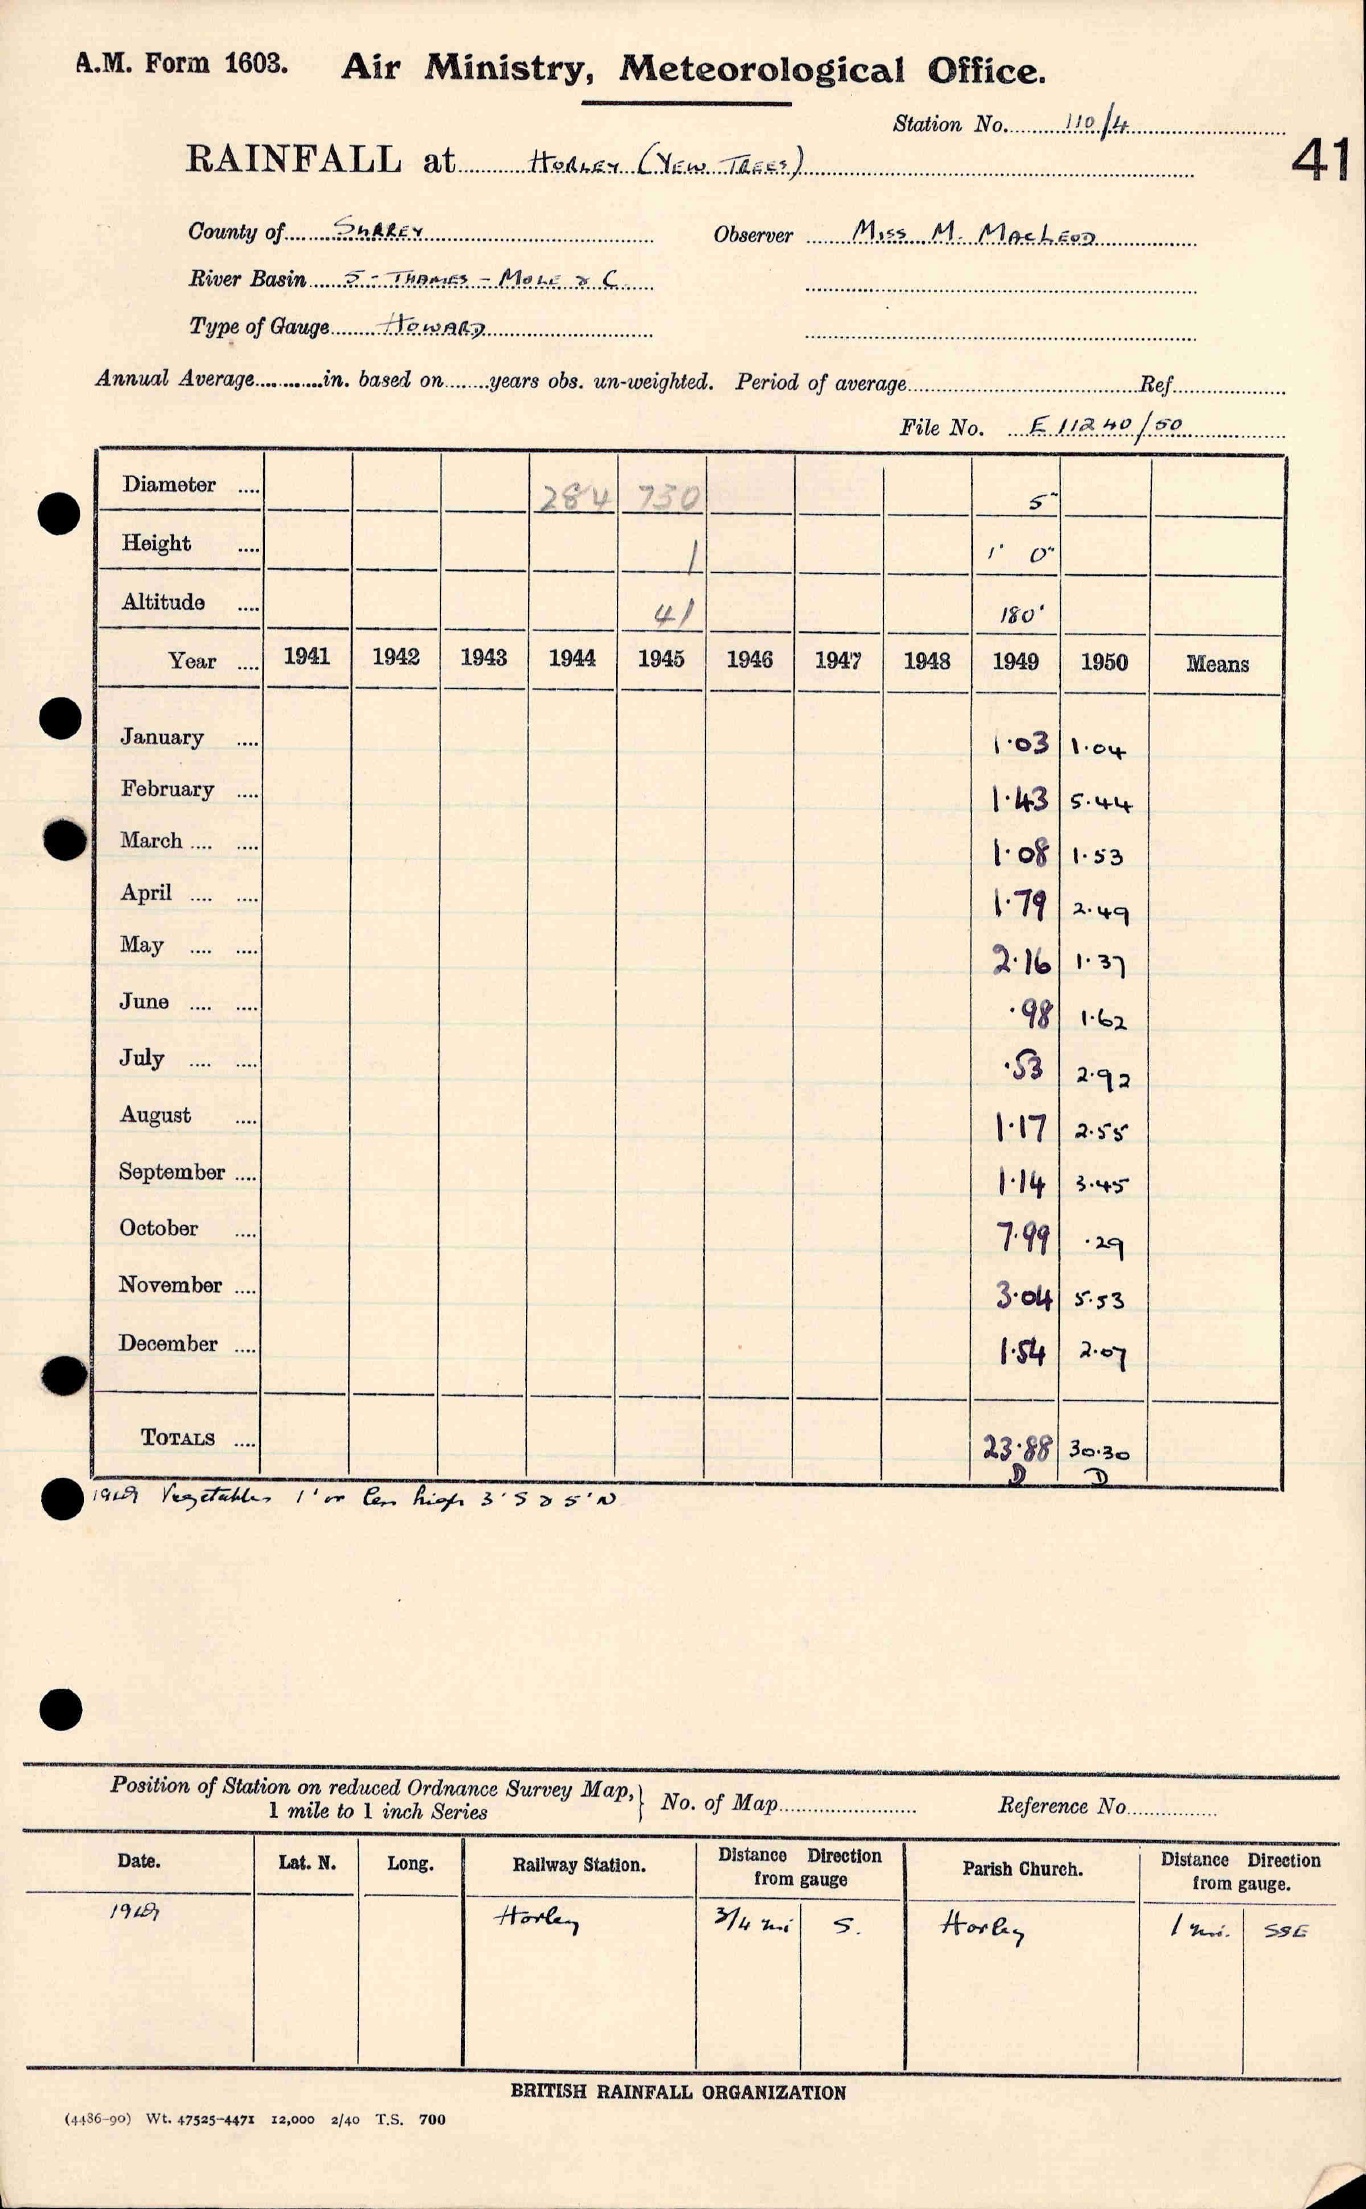 A.M. Form 1603. Air Ministry, Meteorological Office.
Station No. 110/4
RAINFALL at HORLEY (YEW TREES)
41
County of SURREY Observer MISS M. MACLEOD
River Basin 5 - THAMES - MOLE & C
Type of Gauge HOWARD
Annual Average............in. based on........years obs. un-weighted. Period of average Ref.
File No. E 11240/50
Diameter .... 284 730 5"
Height .... 1 1' 0"
Altitude .... 41 180'
Year .... 1941 1942 1943 1944 1945 1946 1947 1948 1949 1950 Means
January .... 1·03 1·04
February .... 1·43 5·44
March .... .... 1·08 1·53
April .... .... 1·79 2·49
May .... .... 2·16 1·37
June .... .... ·98 1·62
July .... .... ·53 2·92
August .... 1·17 2·55
September .... 1·14 3·45
October .... 7·99 ·29
November .... 3·04 5·53
December .... 1·54 2·07
TOTALS .... 23·88 30·30
D D
1949 Vegetables 1' or less high 3' S & 5' N
Position of Station on reduced Ordnance Survey Map,
1 mile to 1 inch Series } No. of Map Reference No.
Date. Lat. N. Long. Railway Station. Distance Direction from gauge Parish Church. Distance Direction from gauge.
1949 Horley 3/4 mi S. Horley 1 mi. SSE
BRITISH RAINFALL ORGANIZATION
(4486-90) Wt. 47525-4471 12,000 2/40 T.S. 700